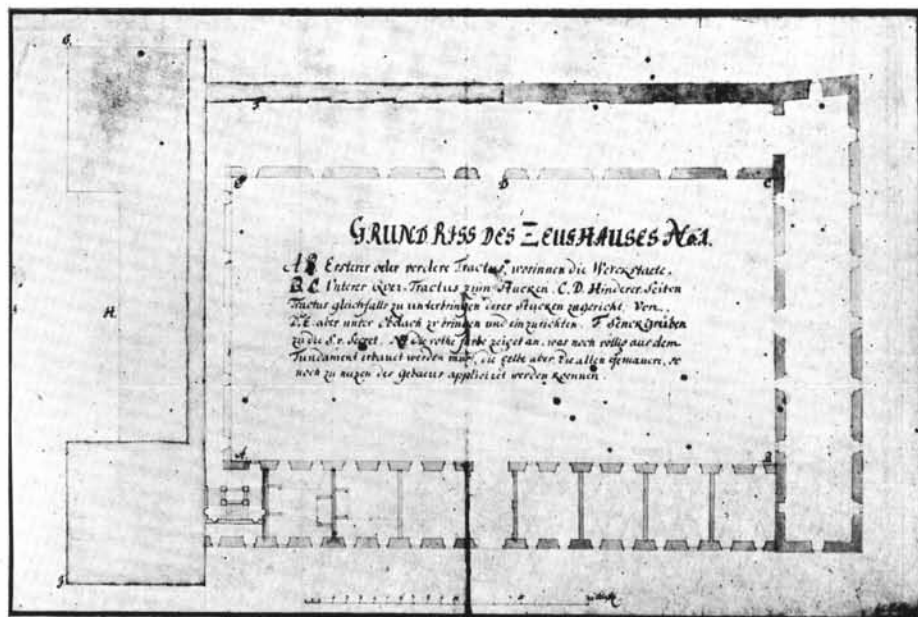 GRUND RISS DES ZEUGHAUSES No.1.
A B Ersterer oder vordere Tractus, worinnen die Werckstaete,
B. C. Unterer Qver-Tractus zum Stucken. C. D. Hinderer Seiten
Tractus gleichfalls zu unterbringen derer Stucken zugericht. Von
D. E. aber unter Obdach zu bringen und einzurichten. F Senckgruben
zu die S.v. Secret. NB die rothe farbe zeiget an, was noch völlig aus dem
fundament erbauet werden muß, die gelbe aber die alten gemauer, so
noch zu nuzen des gebaeus appliciret werden koennen.
G.
F
E
D
C
H
A
B
J